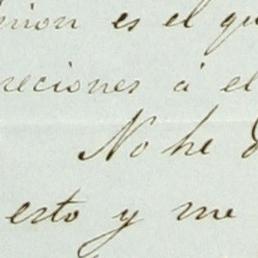 es el
reciones á el
No he
esto y me